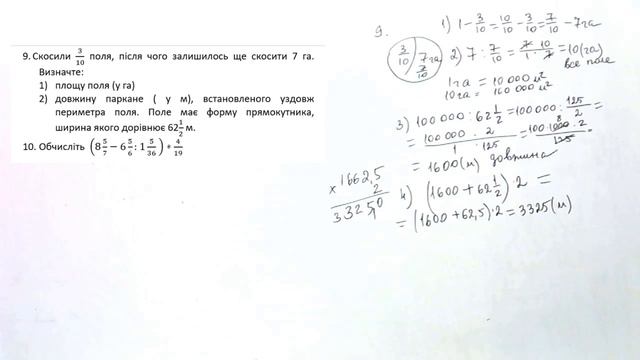 9. Скосили 3/10 поля, після чого залишилось ще скосити 7 га.
Визначте:
1) площу поля (у га)
2) довжину паркане ( у м), встановленого уздовж
периметра поля. Поле має форму прямокутника,
ширина якого дорівнює 62 1/2 м.
10. Обчисліть (8 5/7 − 6 5/6 : 1 5/36) * 4/19
9.
3/10 7 га 7/10
1) 1 - 3/10 = 10/10 - 3/10 = 7/10 - 7 га
2) 7 : 7/10 = 7/1 · 10/7 = 10 (га)
все поле
1 га = 10 000 м²
10 га = 100 000 м²
3) 100 000 : 62 1/2 = 100 000 : 125/2 =
= 100 000 · 2 / 1 · 125 =
= 1600 (м) довжина
4) (1600 + 62 1/2) · 2 =
= (1600 + 62,5) · 2 = 3325 (м)
× 1662,5
2
3325,0